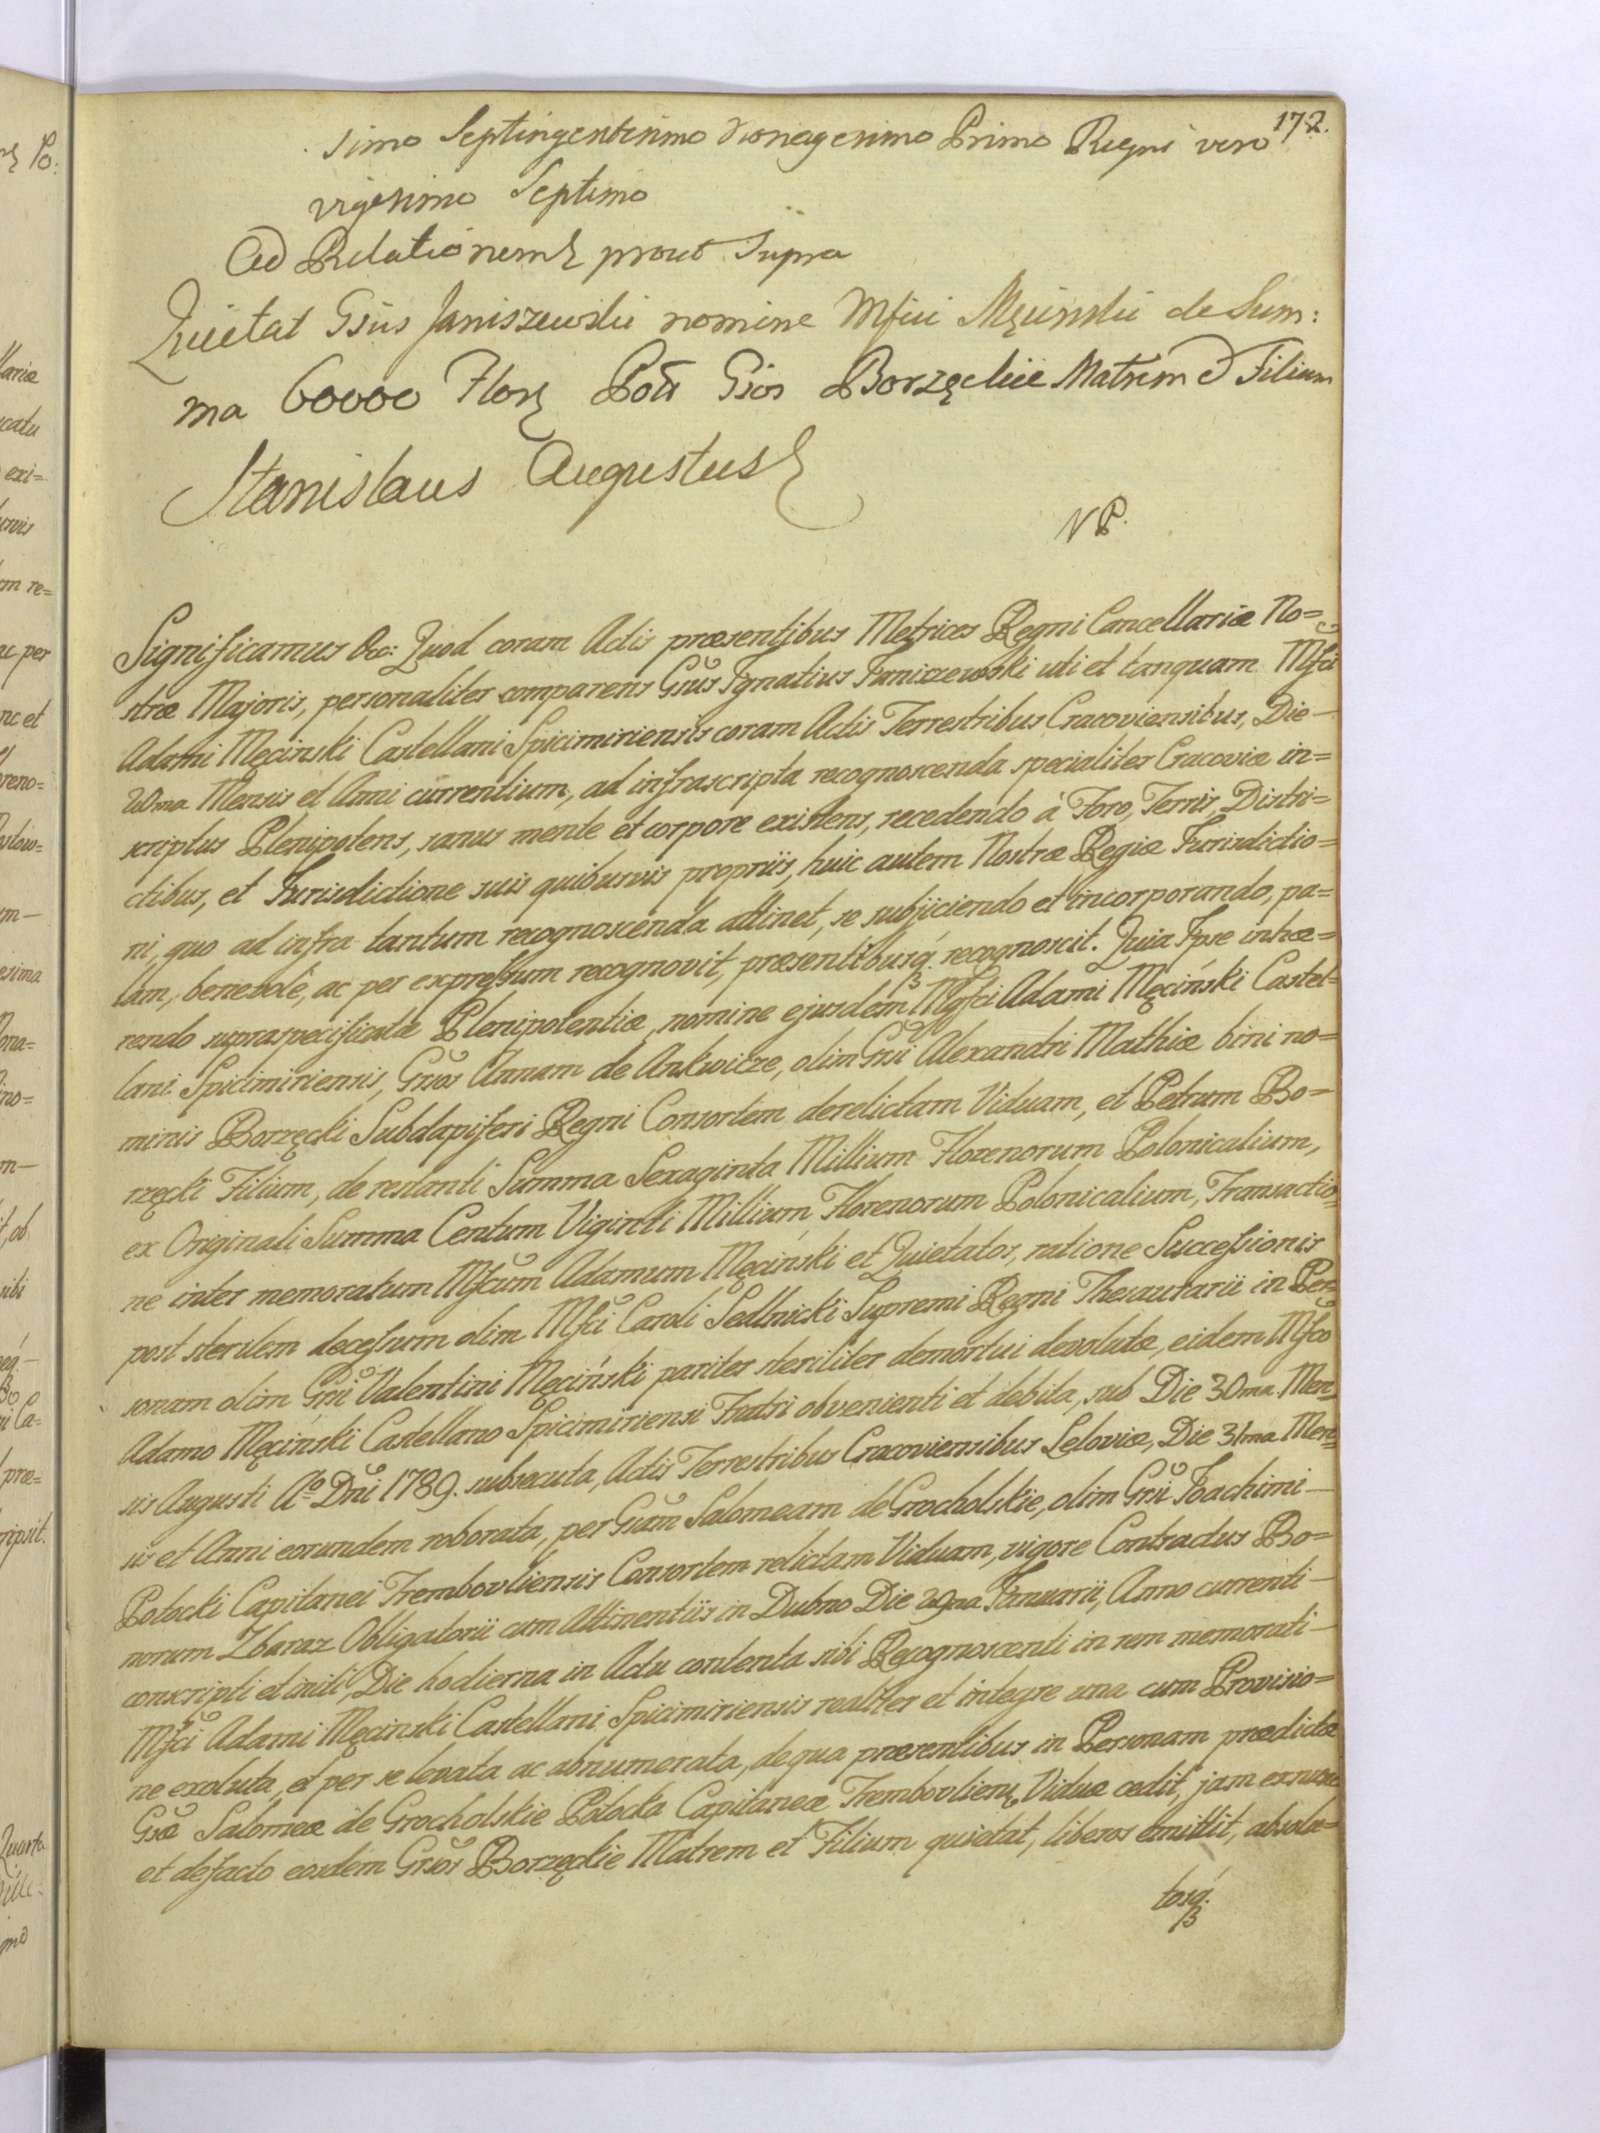 172.
simo Septingentesimo Nonagesimo Primo Regni vero
vigesimo Septimo
Ad Relationem prout Supra
Quietat Gsus Janiszewski nomine Mfici Męcinski de Sum:
ma 60000 Flor Pol Gsos Borzęckie Matrem & Filium
Stanislaus Augustus
VP.
Significamus &c: Quod coram Actis præsentibus Metrices Regni Cancellariæ No=
stræ Majoris, personaliter comparens Gsus Ignatius Janiszewski uti et tanquam Mfci
Adami Męcinski Castellani Spicimiriensis coram Actis Terrestribus Cracoviensibus, Die
20ma Mensis et Anni currentium, ad infrascripta recognoscenda specialiter Cracoviæ in=
scriptus Plenipotens, sanus mente et corpore existens, recedendo à Foro, Terris, Distri=
ctibus, et Jurisdictione suis quibusvis propriis, huic autem Nostræ Regiæ Jurisdictio=
ni, quo ad infra tantum recognoscenda attinet, se subjiciendo et incorporando, pa=
lam, benevolè, ac per expressum recognovit, præsentibusq. recognoscit. Quia Ipse inhæ=
rendo supraspecificatæ Plenipotentiæ, nomine ejusdem Mgfci Adami Męciński Castel=
lani Spicimiriensis, Gsos Annam de Ankwicze, olim Gsi Alexandri Mathiæ bini no=
minis Borzęcki Subdapiferi Regni Consortem derelictam Viduam, et Petrum Bo=
rzęcki Filium, de restanti Summa Sexaginta Millium Florenorum Polonicalium,
ex Originali Summa Centum Viginti Millium Florenorum Polonicalium, Transactio=
ne inter memoratum Mfcum Adamum Męciński et Quietatos, ratione Successionis
post sterilem decessum olim Mfci Caroli Sedlnicki Supremi Regni Thesaurarii in Per=
sonam olim Gsi Valentini Męciński pariter steriliter demortui devolutæ, eidem Mfco
Adamo Męciński Castellano Spicimiriensi Fratri obvenienti et debita, sub Die 30ma Men=
sis Augusti Ao Dni 1789. subsecuta, Actis Terrestribus Cracoviensibus Leloviæ, Die 31ma Men=
sis et Anni eorundem roborata, per Gsam Salomeam de Grocholskie, olim Gsi Joachimi
Potocki Capitanei Trembovliensis Consortem relictam Viduam, vigore Contractus Bo=
norum Zbaraz Obligatorii cum Attinentiis in Dubno Die 29na Januarii, Anno currenti
conscripti et initi, Die hodierna in Actu contenta sibi Recognoscenti in rem memorati
Mfci Adami Męcinski Castellani Spicimiriensis realiter et integre una cum Provisio=
ne exoluta, et per se levata ac adnumerata, de qua præsentibus in Personam prædictæ
Gsæ Salomeæ de Grocholskie Potocka Capitaneæ Trembovliens, Viduæ cedit, jam exnunc
et defacto eosdem Gsos Borzęckie Matrem et Filium quietat, liberos emittit, absolu=
tosq.